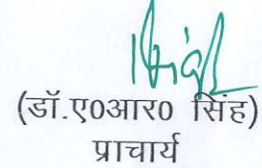 (डॉ.ए0आर0 सिंह)
प्राचार्य